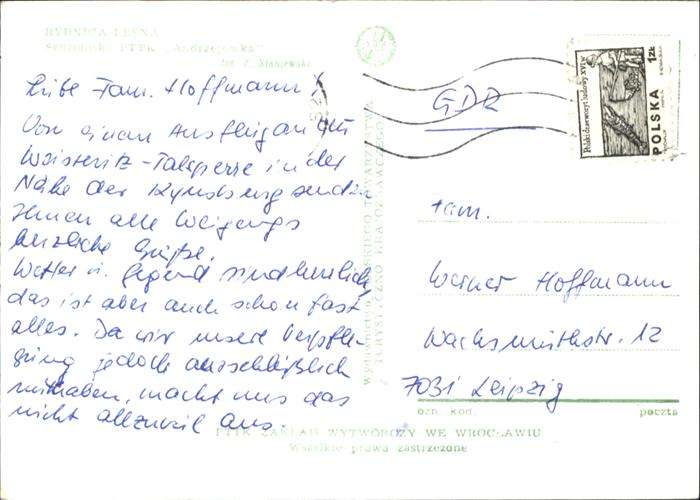 RYBNICA LEŚNA
Schronisko PTTK „Andrzejówka"
fot.
Liebe Fam. Hoffmann!
Von einem Ausflug an die
Weistritz-Talsperre in der
Nähe der Kynsburg senden
Ihnen alle Weigangs
herzliche Grüße.
Wetter u. Gegend sind herrlich,
das ist aber auch schon fast
alles. Da wir unsere Verpfle-
gung jedoch ausschließlich
mithaben, macht uns das
nicht allzuviel aus.
GDR
Polski drzeworyt ludowy XVI w.
POLSKA
1zł
Fam.
Werner Hoffmann
Wachsmuthstr. 12
7031 Leipzig
ozn. kod.
poczta
PTTK ZAKŁAD WYTWÓRCZY WE WROCŁAWIU
Wszelkie prawa zastrzeżone